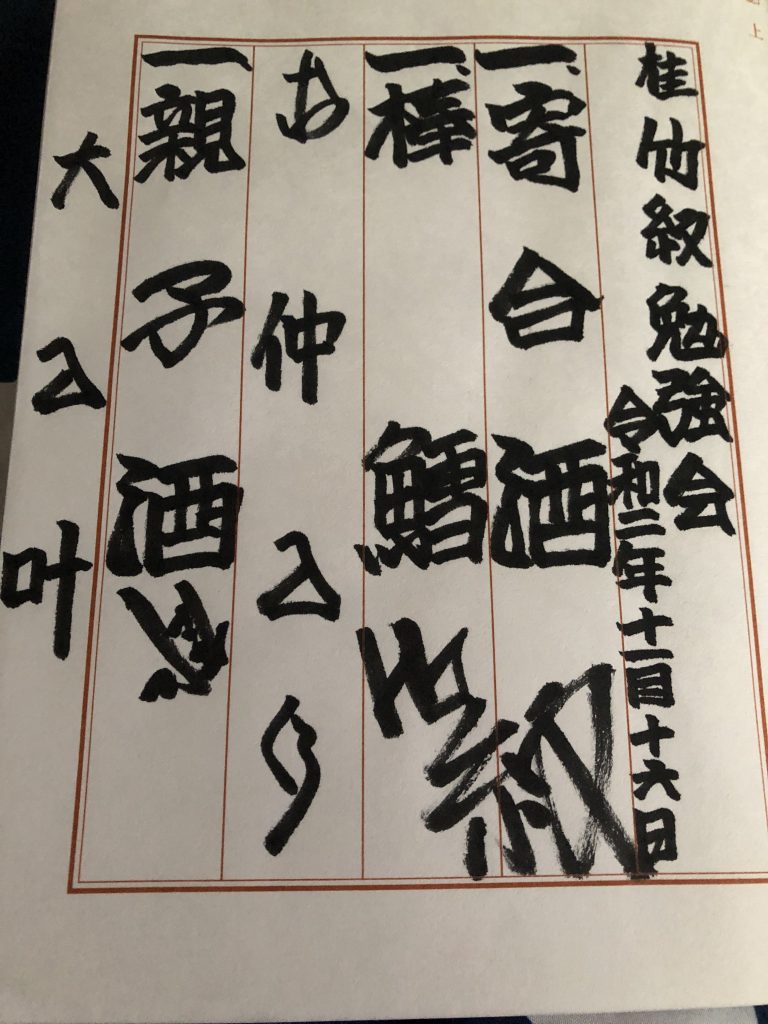 桂竹紋勉強会
令和二年十一月十六日
一、寄合酒
一、棒鱈
竹紋
お仲入り
一親子酒
大入叶